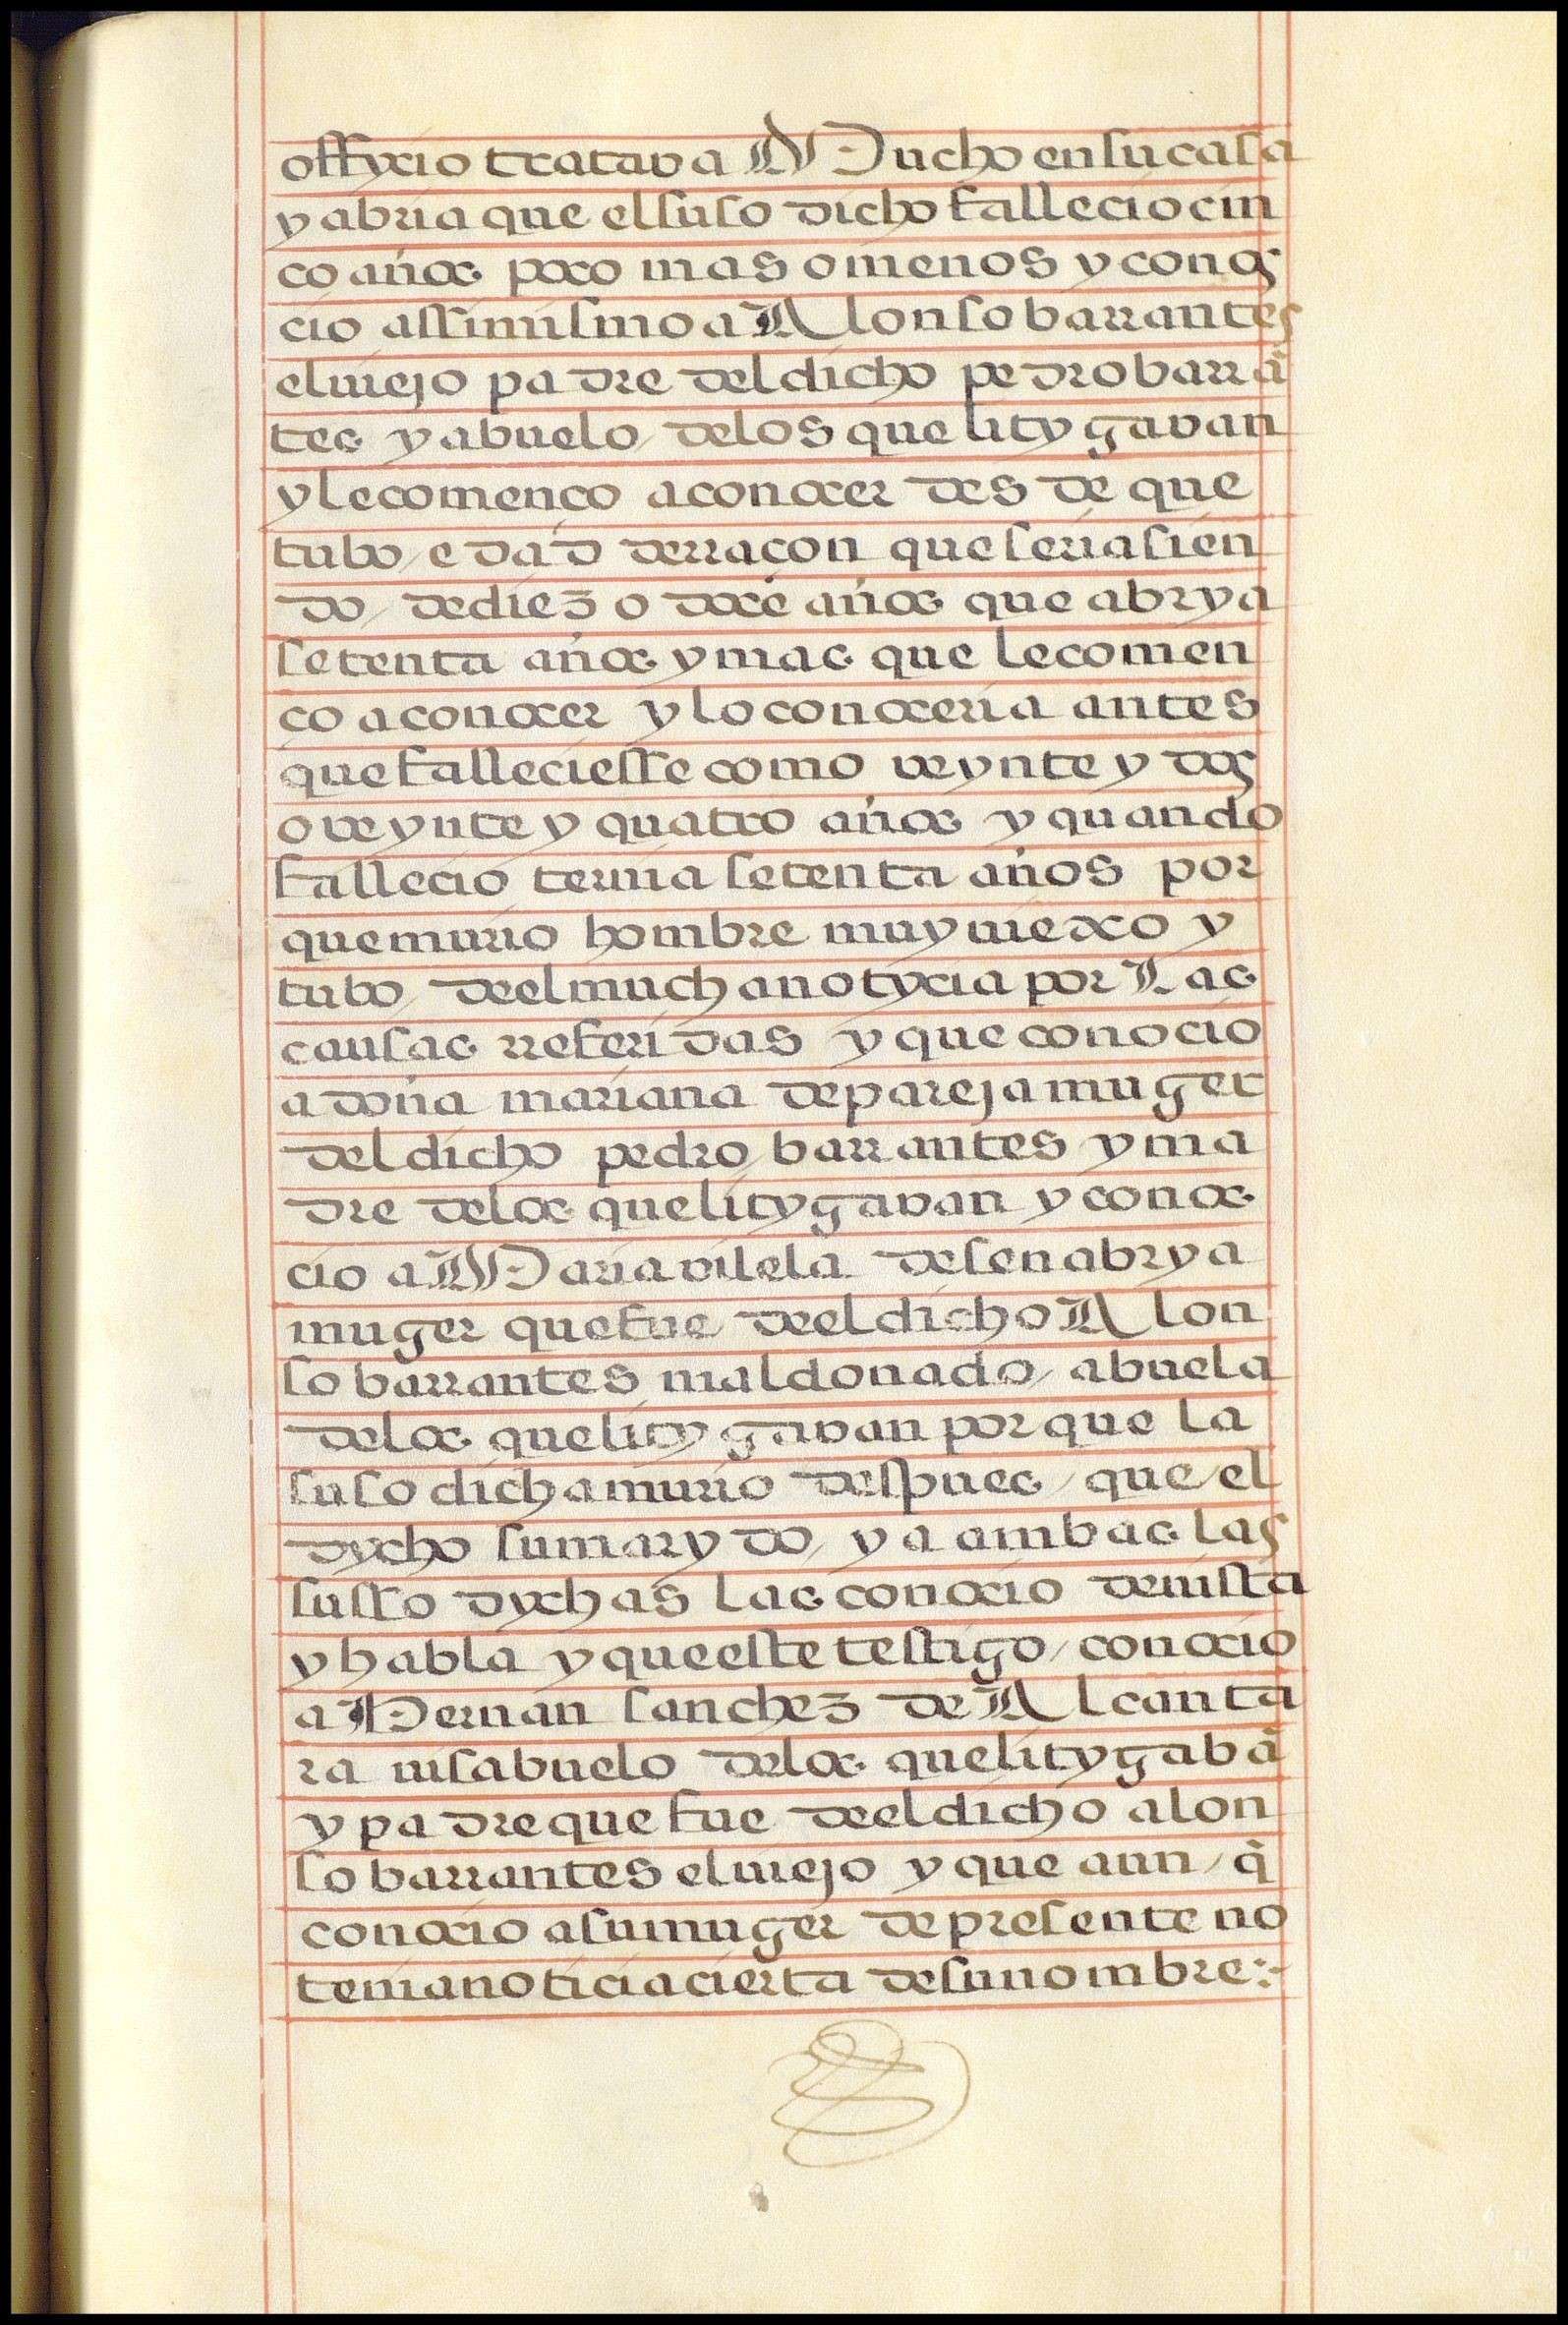 offycio tratava Mucho en su casa
y abria que el suso dicho fallecio cin
co años poco mas o menos y conos
cio assimismo a Alonso barrantes
el viejo padre del dicho pedro barrā
tes y abuelo de los que litygavan
y le començo a conocer des de que
tubo edad derraçon que seria sien
do de diez o doce años que abrya
setenta años y mas que le comen
ço a conocer y lo conoceria antes
que falleciesse como veynte y dos
o veynte y quatro años y quando
fallecio ternia setenta años por
que murio hombre muy viexo y
tubo de el mucha notycia por Las
causas rreferidas y que conocio
a doña mariana de pareja muger
del dicho pedro barrantes y ma
dre de los que litygavan y conos
cio a Maria vilela de senabrya
muger que fue de el dicho Alon
so barrantes maldonado abuela
de los que litygavan por que la
suso dicha murio despues que el
dycho su marydo y a ambas las
susso dychas las conocio de vista
y habla y que este testigo conocio
a Hernan sanchez de Alcanta
ra visabuelo de los que litygabā
y padre que fue de el dicho alon
so barrantes el viejo y que aun q̄
conocio a su muger de presente no
tenia noticia cierta de su nombre :~